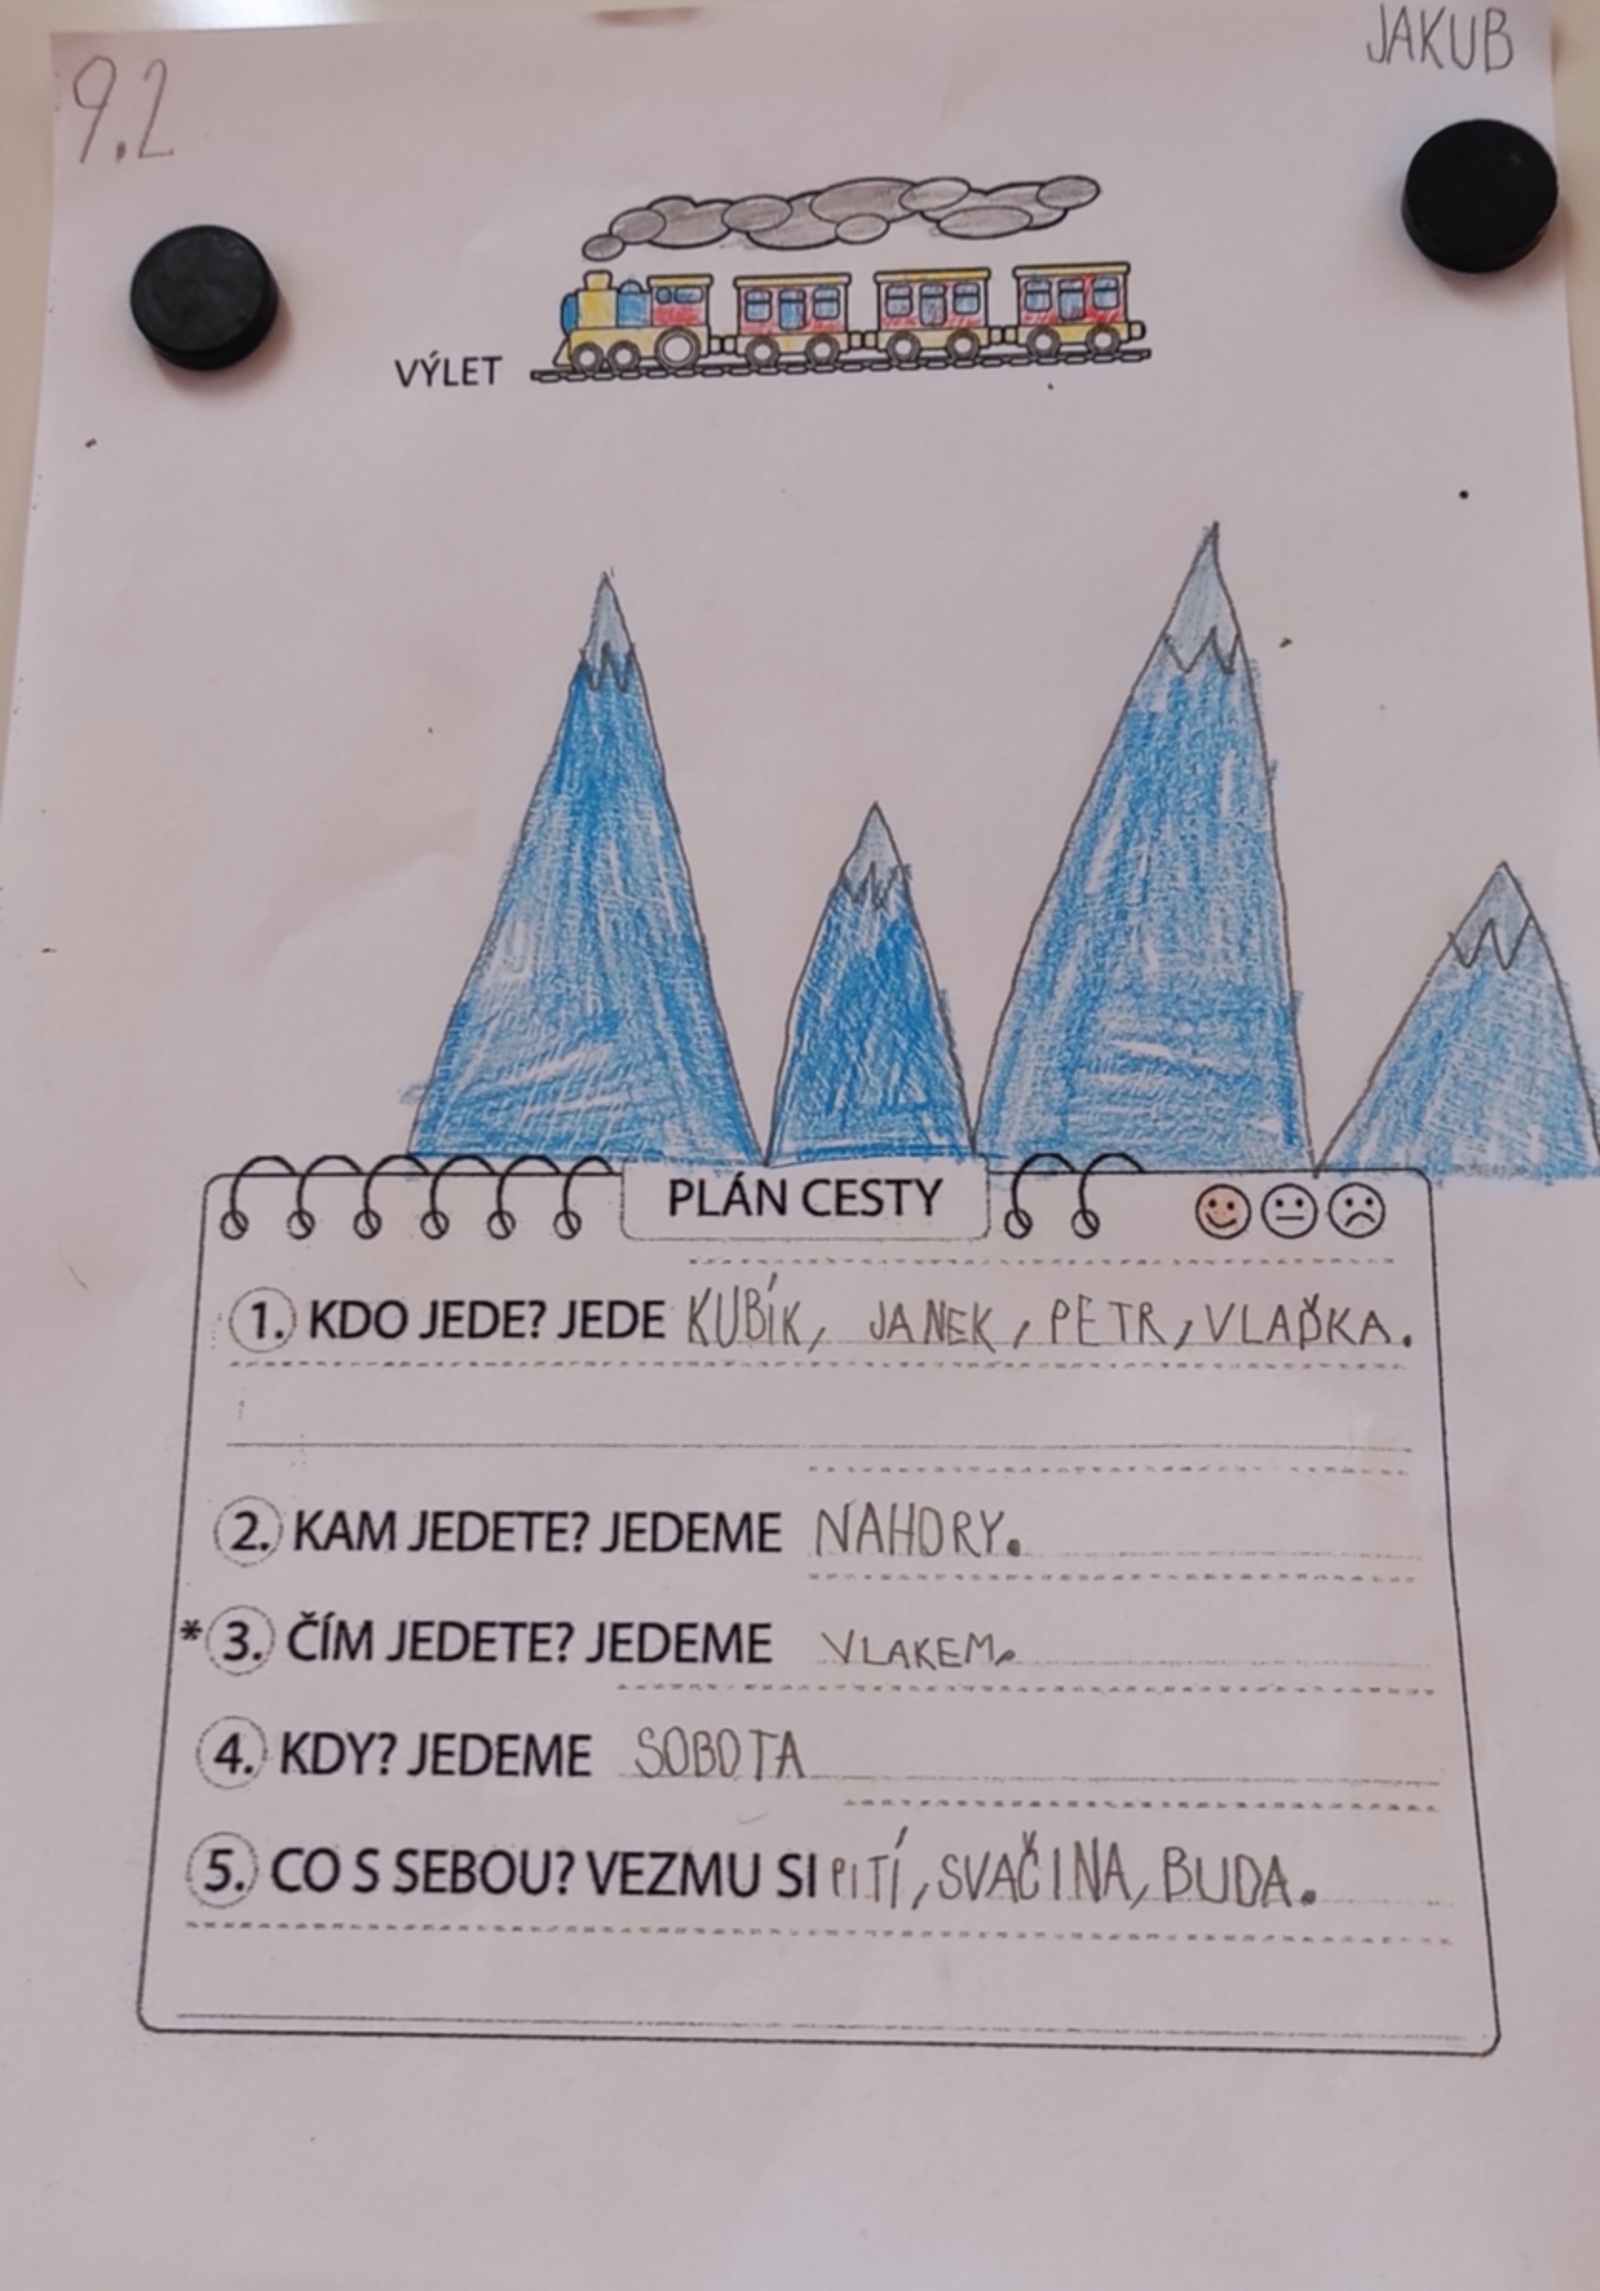 JAKUB
9.2
VÝLET
PLÁN CESTY
1. KDO JEDE? JEDE KUBÍK, JANEK, PETR, VLAĎKA.
2. KAM JEDETE? JEDEME NAHORY.
* 3. ČÍM JEDETE? JEDEME VLAKEM.
4. KDY? JEDEME SOBOTA
5. CO S SEBOU? VEZMU SI PITÍ, SVAČINA, BUDA.